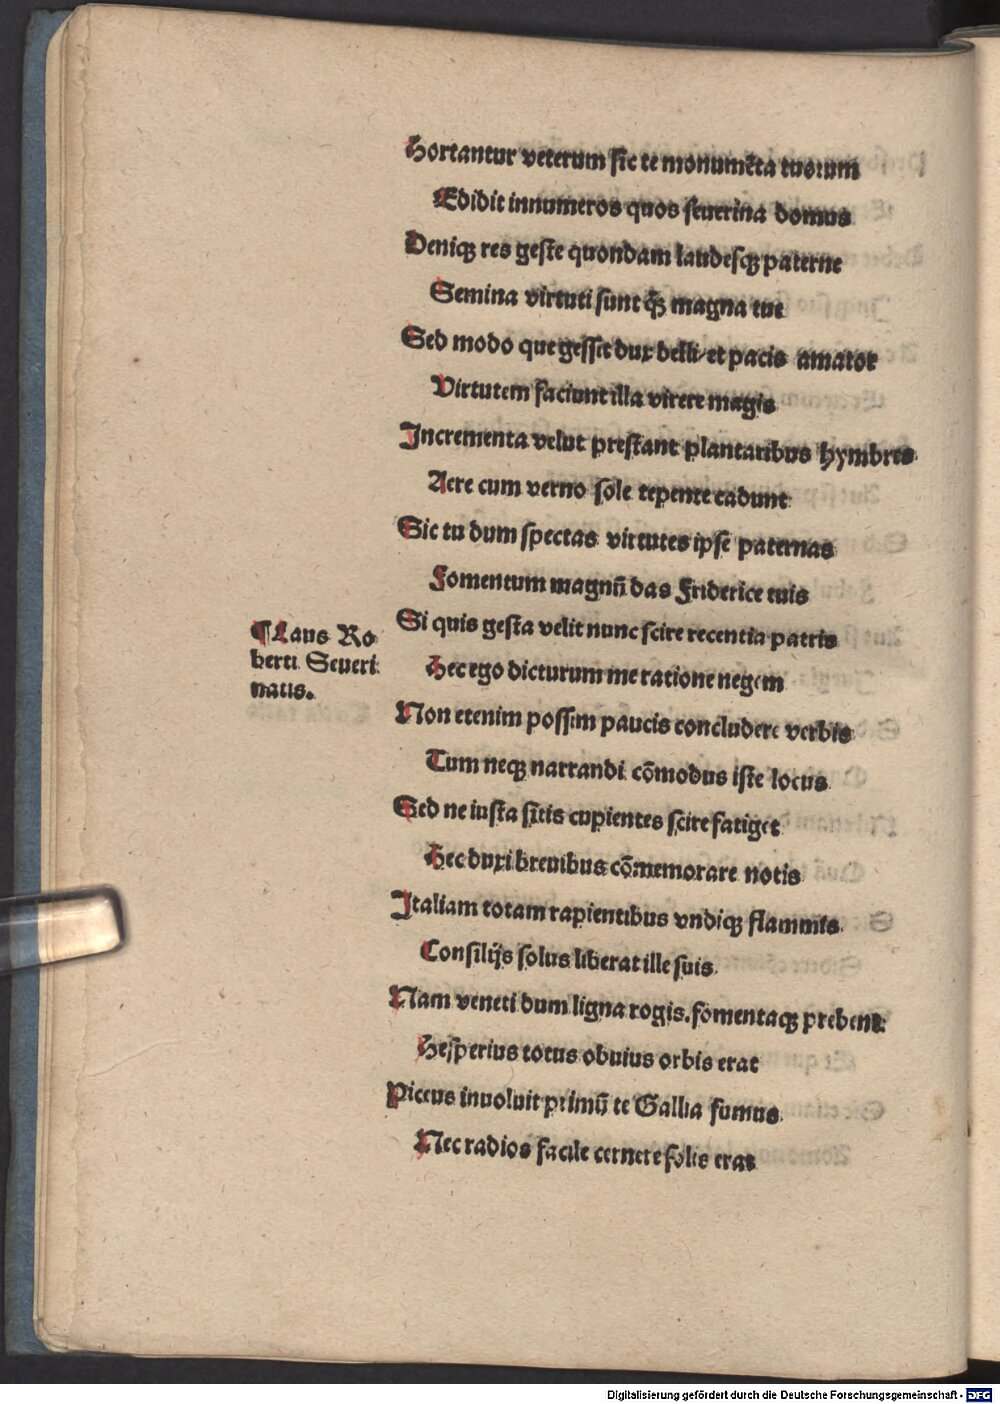 Hortantur veterum sic te monumēta tuorum
Edidit innumeros quos seuerina domus
Deniqꝫ res geste quondam laudesqꝫ paterne
Semina virtuti sunt qꝫ̄ magna tue
Sed modo que gessit dux belli/et pacis amator
Virtutem faciunt illa virere magis
Incrementa velut prestant plantaribus hymbres
Aere cum verno sole tepente cadunt
Sic tu dum spectas virtutes ipse paternas
Fomentum magnū das Friderice tuis
Si quis gesta velit nunc scire recentia patris
Hec ego dicturum me ratione negem
¶Laus Ro
berti Seueri
natis.
Non etenim possim paucis concludere verbis
Tum neqꝫ narrandi cōmodus iste locus
Sed ne iusta sitis cupientes scire fatiget
Hec duxi breuibus cōmemorare notis
Italiam totam rapientibus vndiqꝫ flammis
Consilijs solus liberat ille suis
Nam veneti dum ligna rogis.fomentaqꝫ prebent
Hesperius totus obuius orbis erat
Piceus inuoluit primū te Gallia fumus
Nec radios facile cernere solis erat
Digitalisierung gefördert durch die Deutsche Forschungsgemeinschaft - DFG